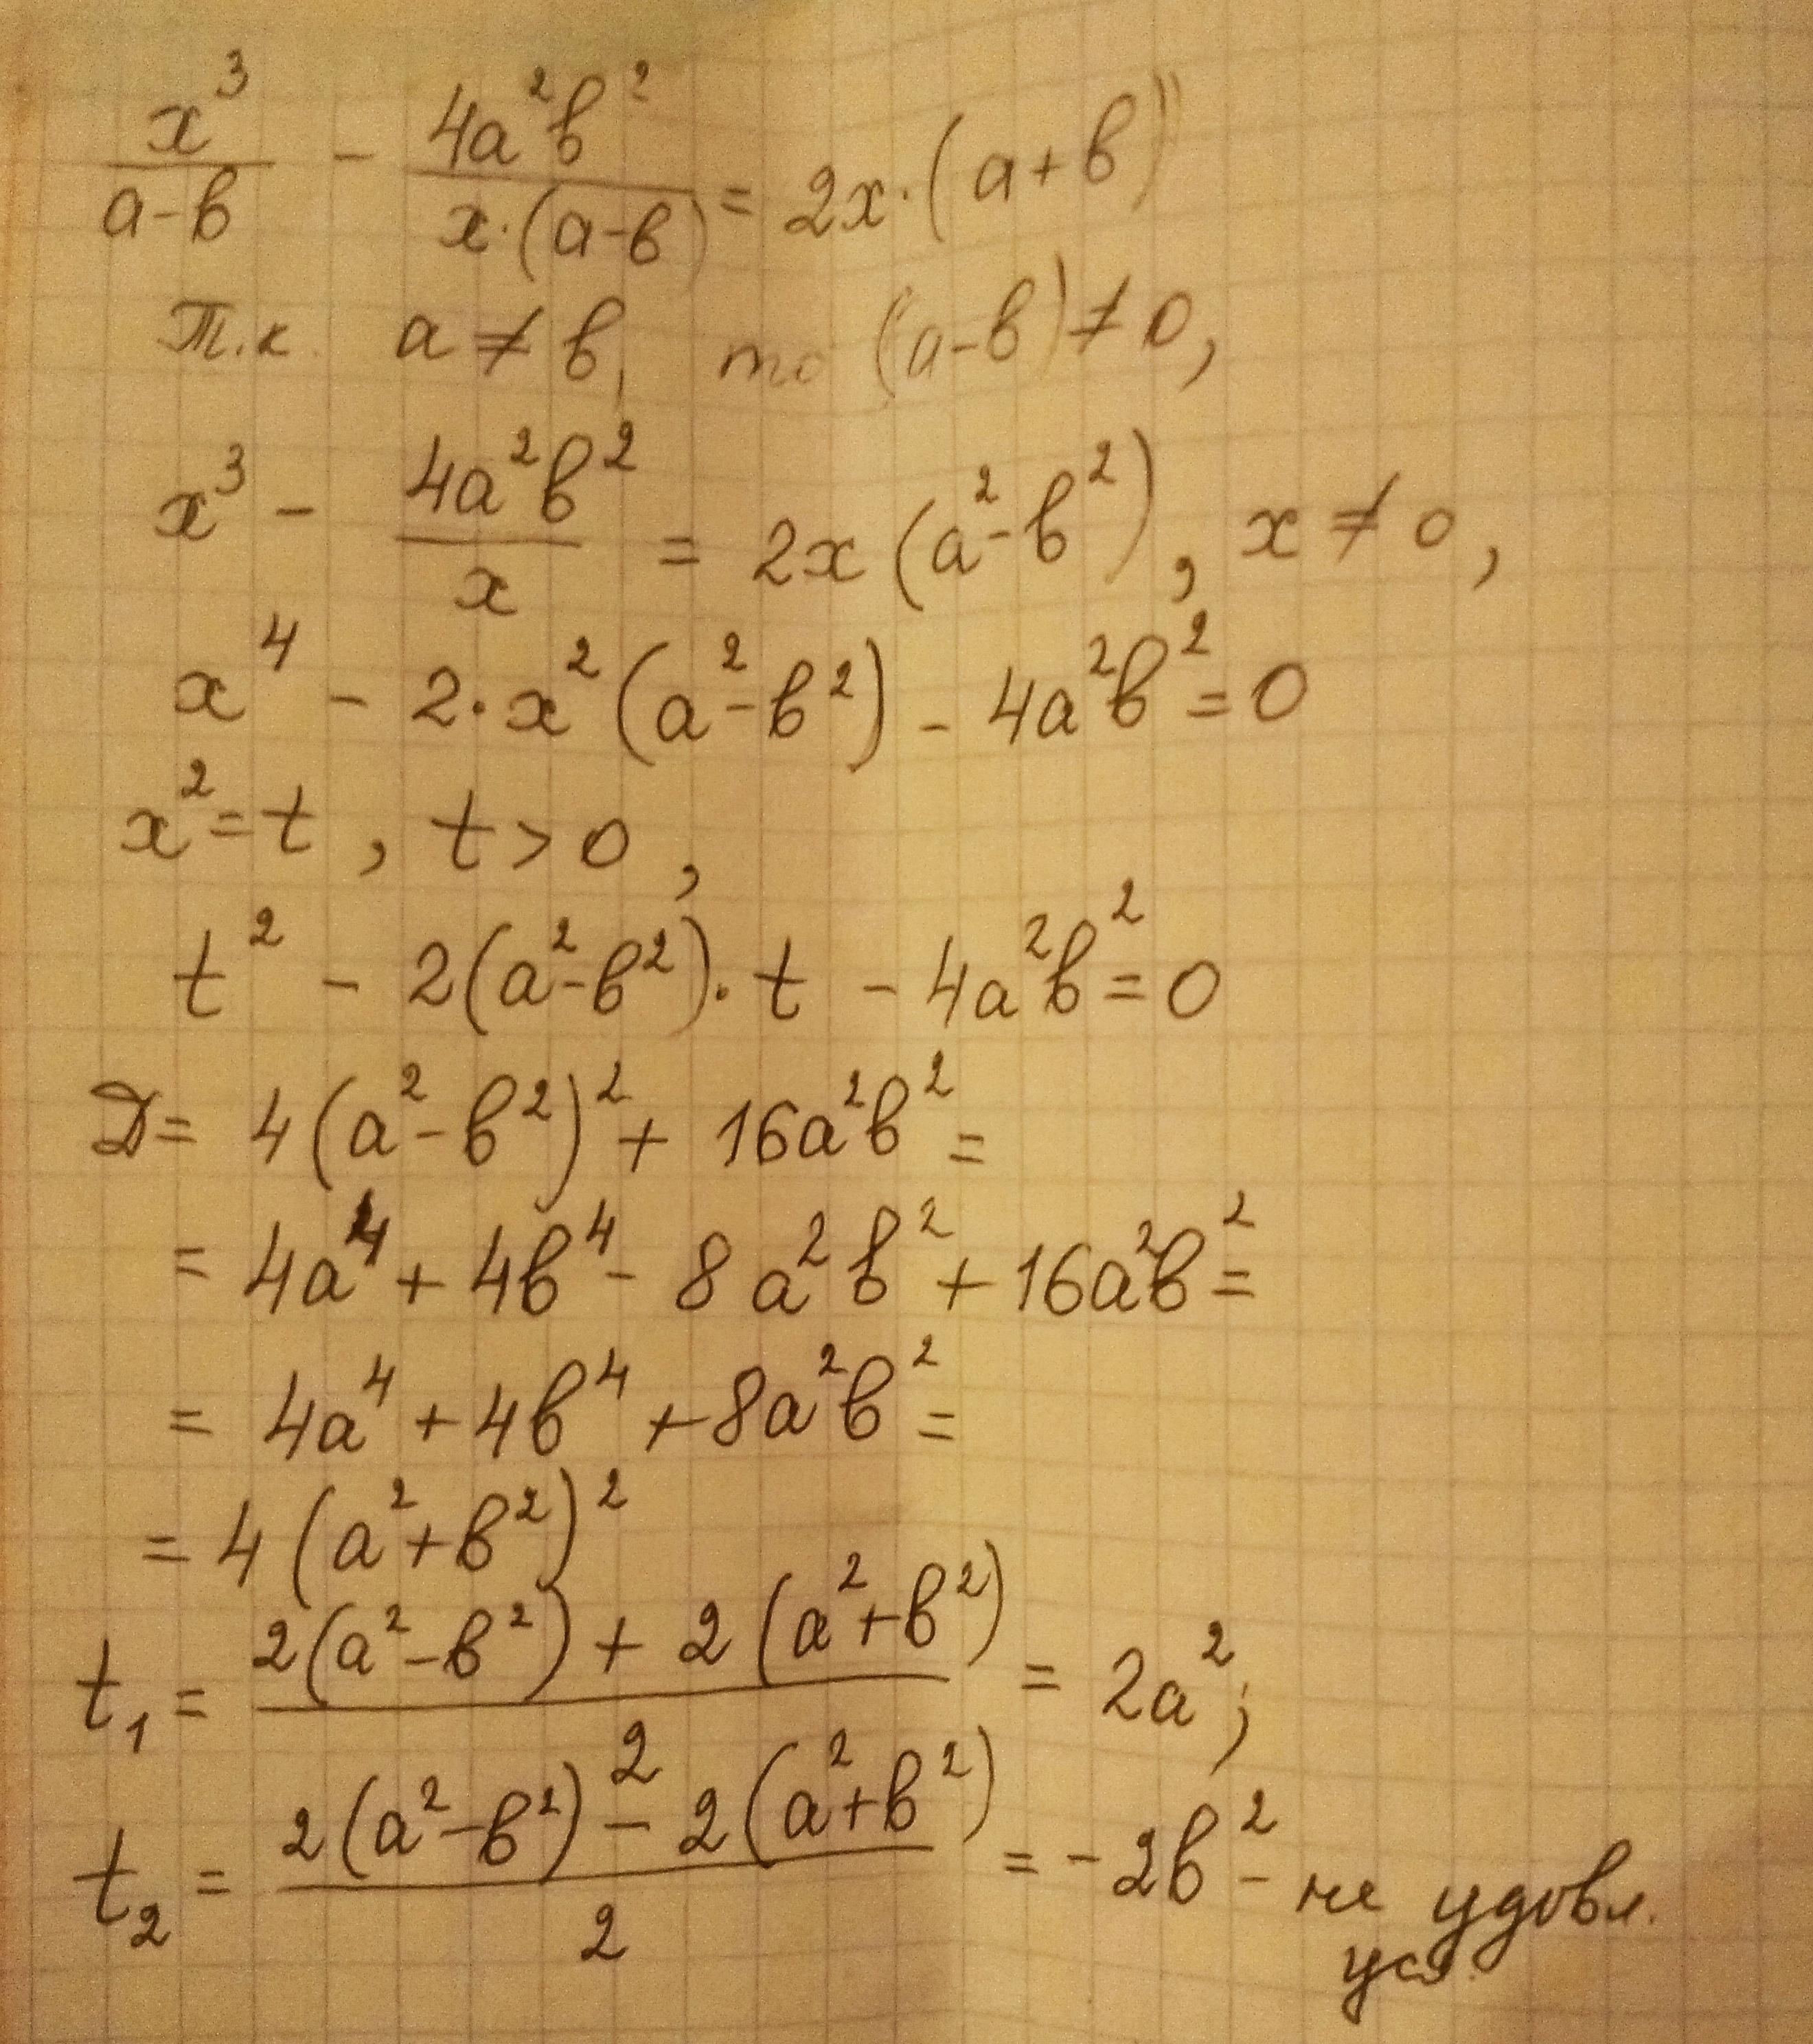 x³/(a-b) - 4a²b²/(x·(a-b)) = 2x·(a+b)
Т.к. a ≠ b, то (a-b) ≠ 0,
x³ - 4a²b²/x = 2x(a²-b²), x ≠ 0,
x⁴ - 2·x²(a²-b²) - 4a²b² = 0
x² = t, t > 0,
t² - 2(a²-b²)·t - 4a²b² = 0
D = 4(a²-b²)² + 16a²b² =
= 4a⁴ + 4b⁴ - 8a²b² + 16a²b² =
= 4a⁴ + 4b⁴ + 8a²b² =
= 4(a²+b²)²
t₁ = (2(a²-b²) + 2(a²+b²))/2 = 2a²;
t₂ = (2(a²-b²) - 2(a²+b²))/2 = -2b² - не удовл.
усл.